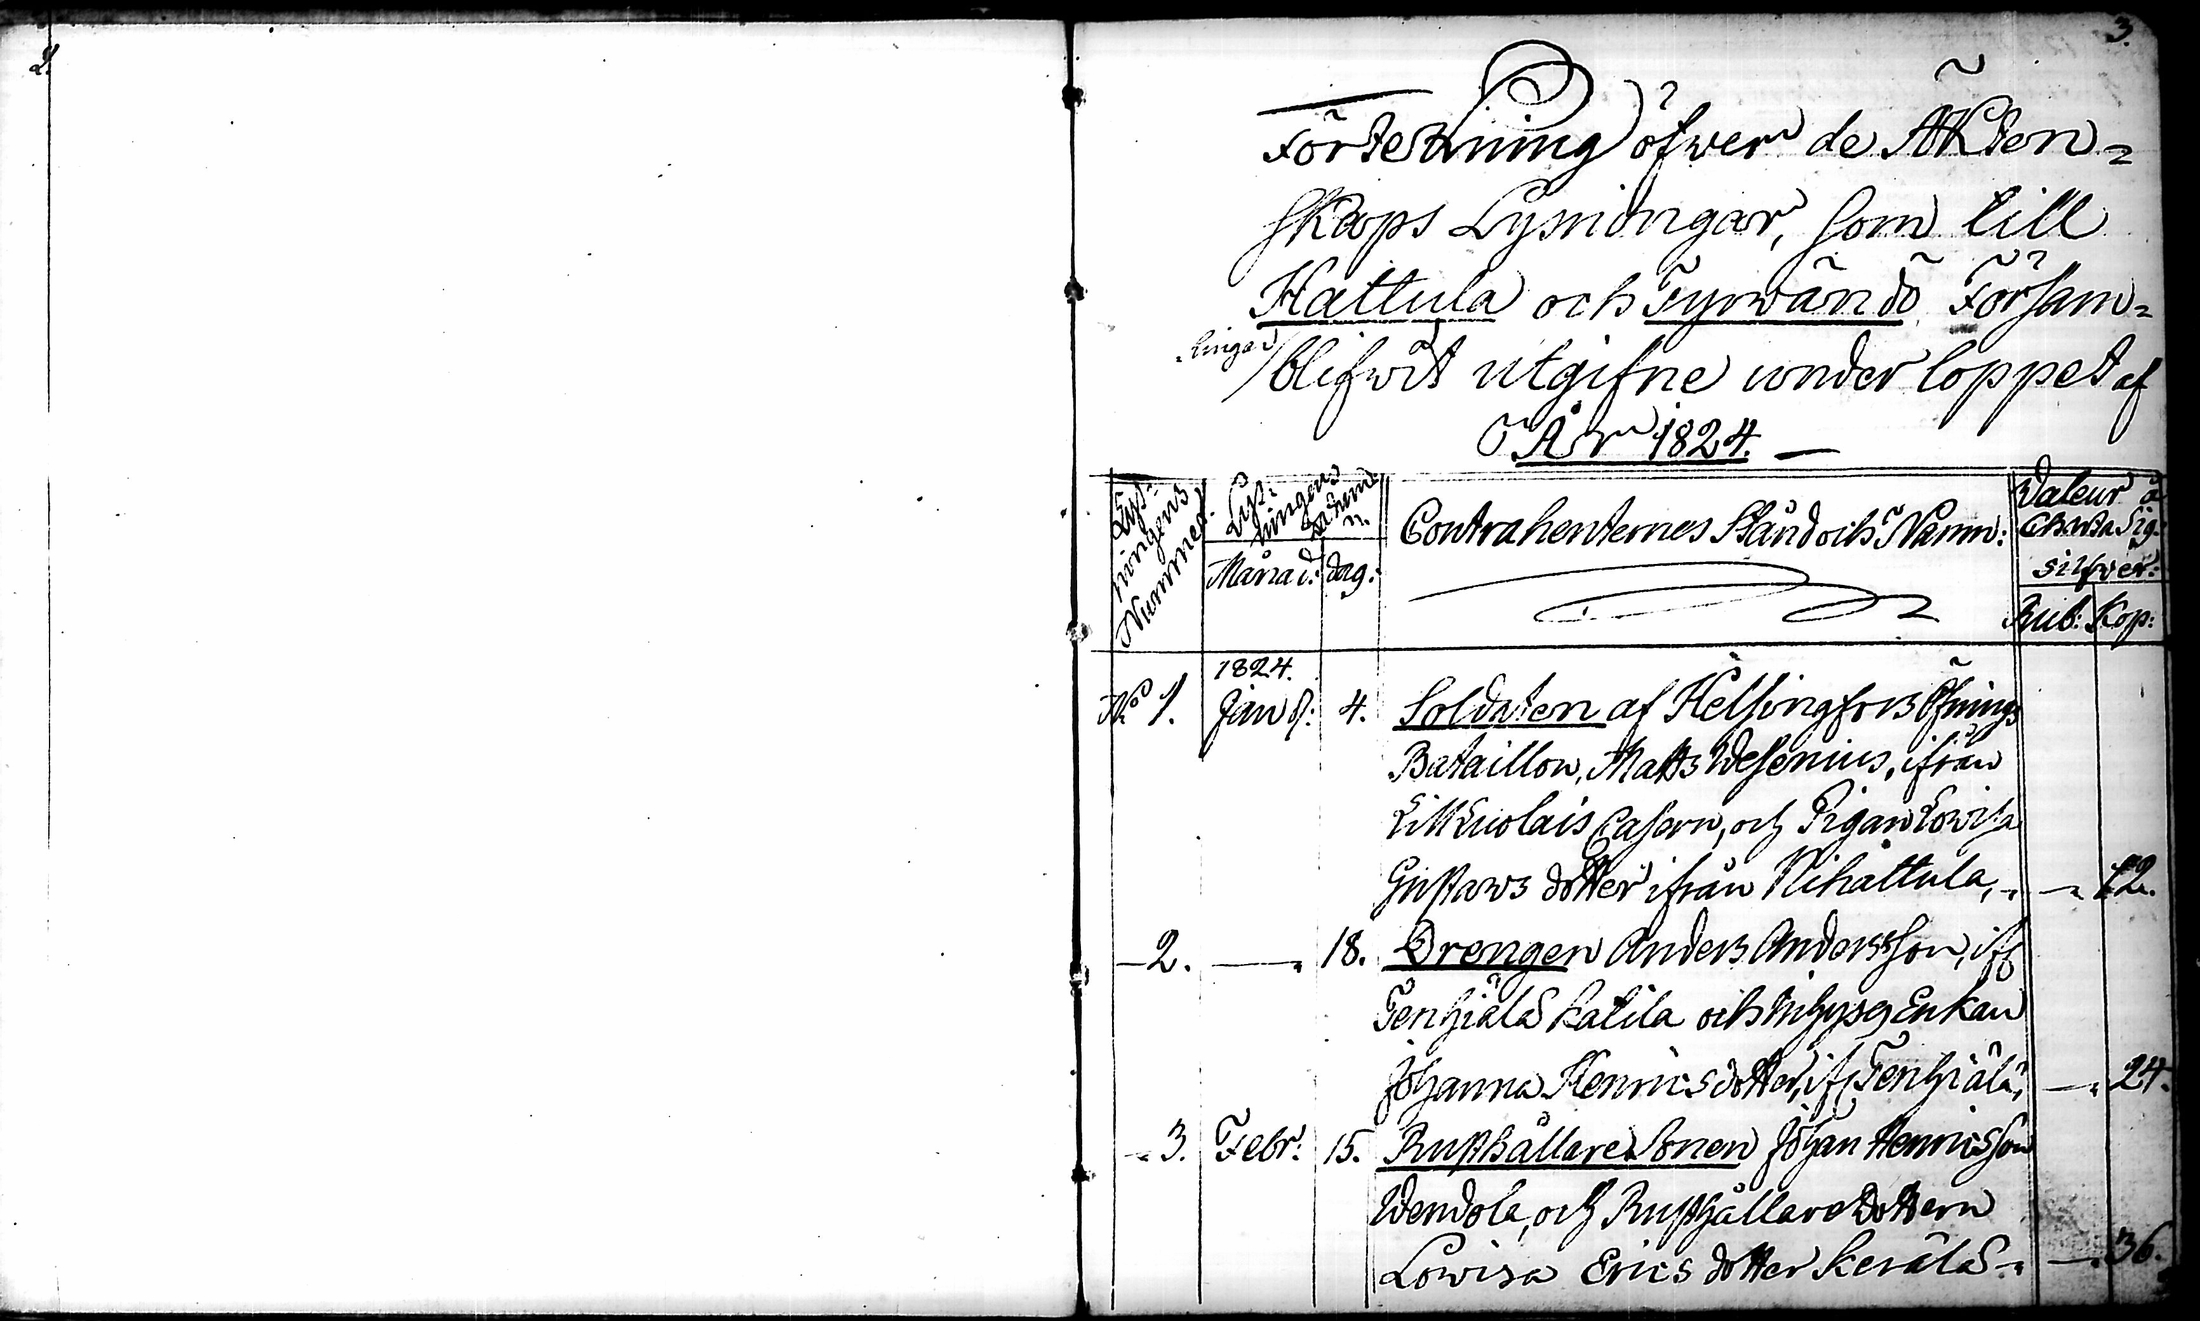 2.
3.
Förtekning öfwer de Äkten=
skaps Lysningar, som till
Hattula och Tyrwändö Försam=
lingar
blifwit utgifne under loppet af
År 1824. —
Lys-
ningens
Nummer.
Lys-
ningens
datum:
Månad: dag:
Contrahenternes Stånd och Namn:
Valeur à
Charta Sig:
silfver:
Rub: Kop:
1824.
No 1. Janr: 4. Soldaten af Helsingfors Öfnings
Bataillon, Matts Wesenius, ifrån
Casern, och Pigan Lowisa
Gustavs dotter ifrån Nihattula, — 12.
— 2. — 18. Drengen Anders Andersson, ifr
Tenhiälä Katila och Inhyses Enkan
Johanna Henrics dotter, ifr Tenhiälä, — 24.
— 3. Febr: 15. Rusthållare Sonen Johan Henricsson
Wendola, och Rusthållare Dottern
Lowisa Erics dotter Kerälä — 36.